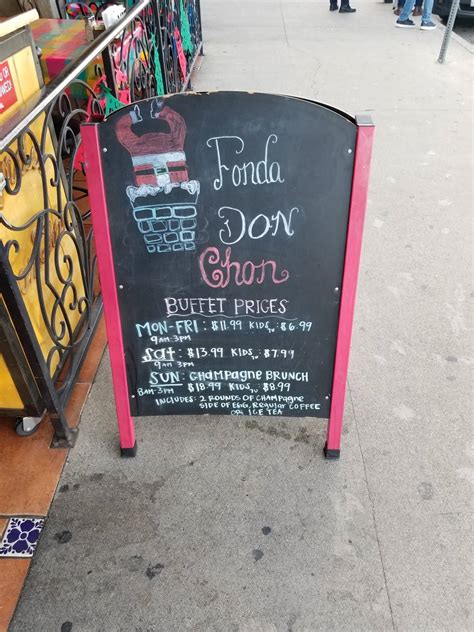 Fonda
DON
Chon
BUFFET PRICES
MON-FRI : $11.99 KIDS $6.99
9AM-3PM
Sat : $13.99 KIDS $7.99
9AM-3PM
SUN : CHAMPAGNE BRUNCH
8AM-3PM $18.99 KIDS $8.99
INCLUDES: 2 ROUNDS OF CHAMPAGNE
SIDE OF EGG, REGULAR COFFEE
OR ICE TEA